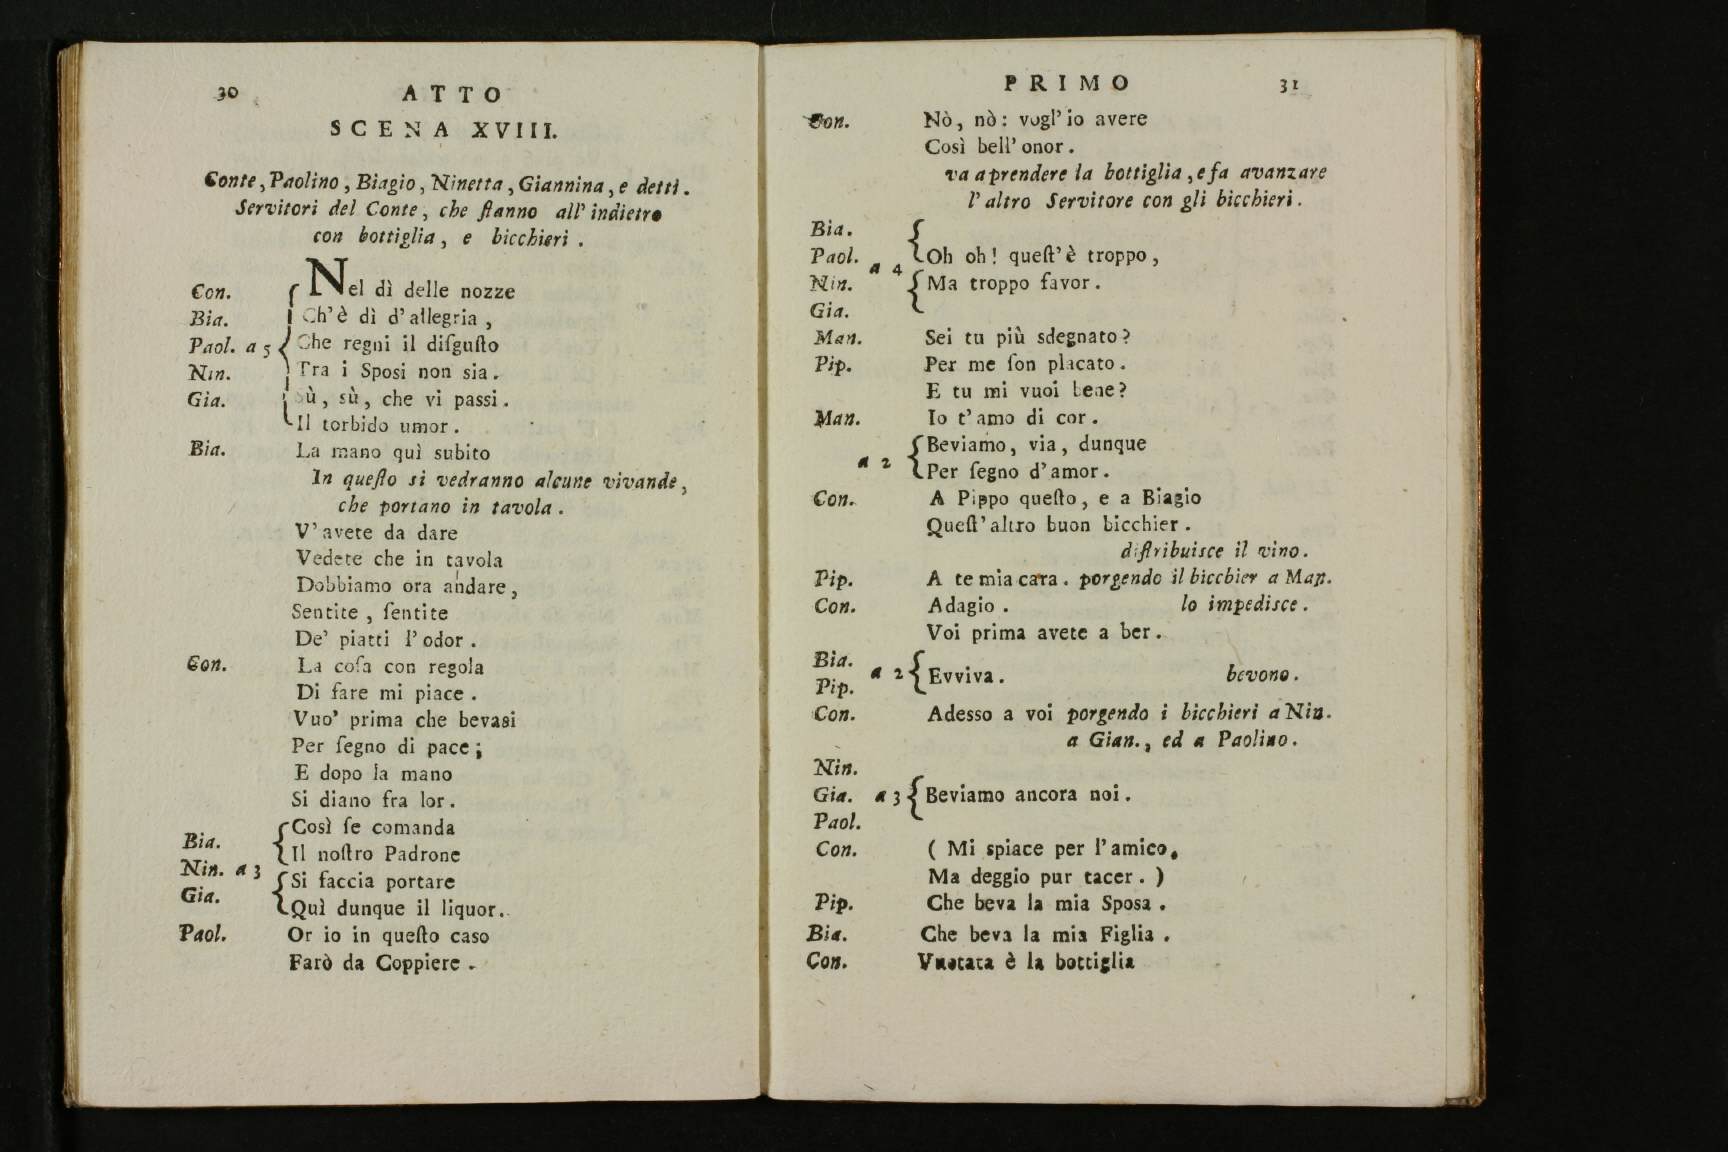 30 ATTO
SCENA XVIII.
Conte, Paolino, Biagio, Ninetta, Giannina, e detti.
Servitori del Conte, che ſtanno all' indietro
con bottiglia, e bicchieri.
Con. Nel dì delle nozze
Bia. Ch'è dì d'allegria,
Paol. a 5 Che regni il diſguſto
Nin. Tra i Sposi non sia.
Gia. Sù, sù, che vi passi.
Il torbido umor.
Bia. La mano quì subito
In queſto si vedranno alcune vivande,
che portano in tavola.
V'avete da dare
Vedete che in tavola
Dobbiamo ora andare,
Sentite, ſentite
De' piatti l'odor.
Con. La coſa con regola
Di fare mi piace.
Vuo' prima che bevasi
Per ſegno di pace;
E dopo la mano
Si diano fra lor.
Così ſe comanda
Bia. Il noſtro Padrone
Nin. a 3 Si faccia portare
Gia. Quì dunque il liquor.
Paol. Or io in queſto caso
Farò da Coppiere.
PRIMO 31
Con. Nò, nò: vogl'io avere
Così bell'onor.
va a prendere la bottiglia, e fa avanzare
l'altro Servitore con gli bicchieri.
Bia.
Paol. Oh oh! queſt'è troppo,
a 4
Nin. Ma troppo favor.
Gia.
Man. Sei tu più sdegnato?
Pip. Per me ſon placato.
E tu mi vuoi bene?
Man. Io t'amo di cor.
a 2 Beviamo, via, dunque
Per ſegno d'amor.
Con. A Pippo queſto, e a Biagio
Queſt'altro buon bicchier.
diſtribuisce il vino.
Pip. A te mia cara. porgendo il bicchier a Man.
Con. Adagio. lo impedisce.
Voi prima avete a ber.
Bia.
a 2 Evviva. bevono.
Pip.
Con. Adesso a voi porgendo i bicchieri a Nin.
a Gian., ed a Paolino.
Nin.
Gia. a 3 Beviamo ancora noi.
Paol.
Con. ( Mi spiace per l'amico,
Ma deggio pur tacer. )
Pip. Che beva la mia Sposa.
Bia. Che beva la mia Figlia.
Con. Vuotata è la bottiglia